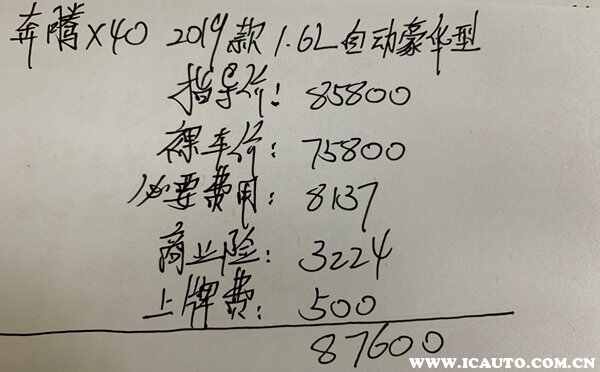 奔腾X40 2019款1.6L自动豪华型
指导价: 85800
裸车价: 75800
必要费用: 8137
商业险: 3224
上牌费: 500
87600
WWW.ICAUTO.COM.CN